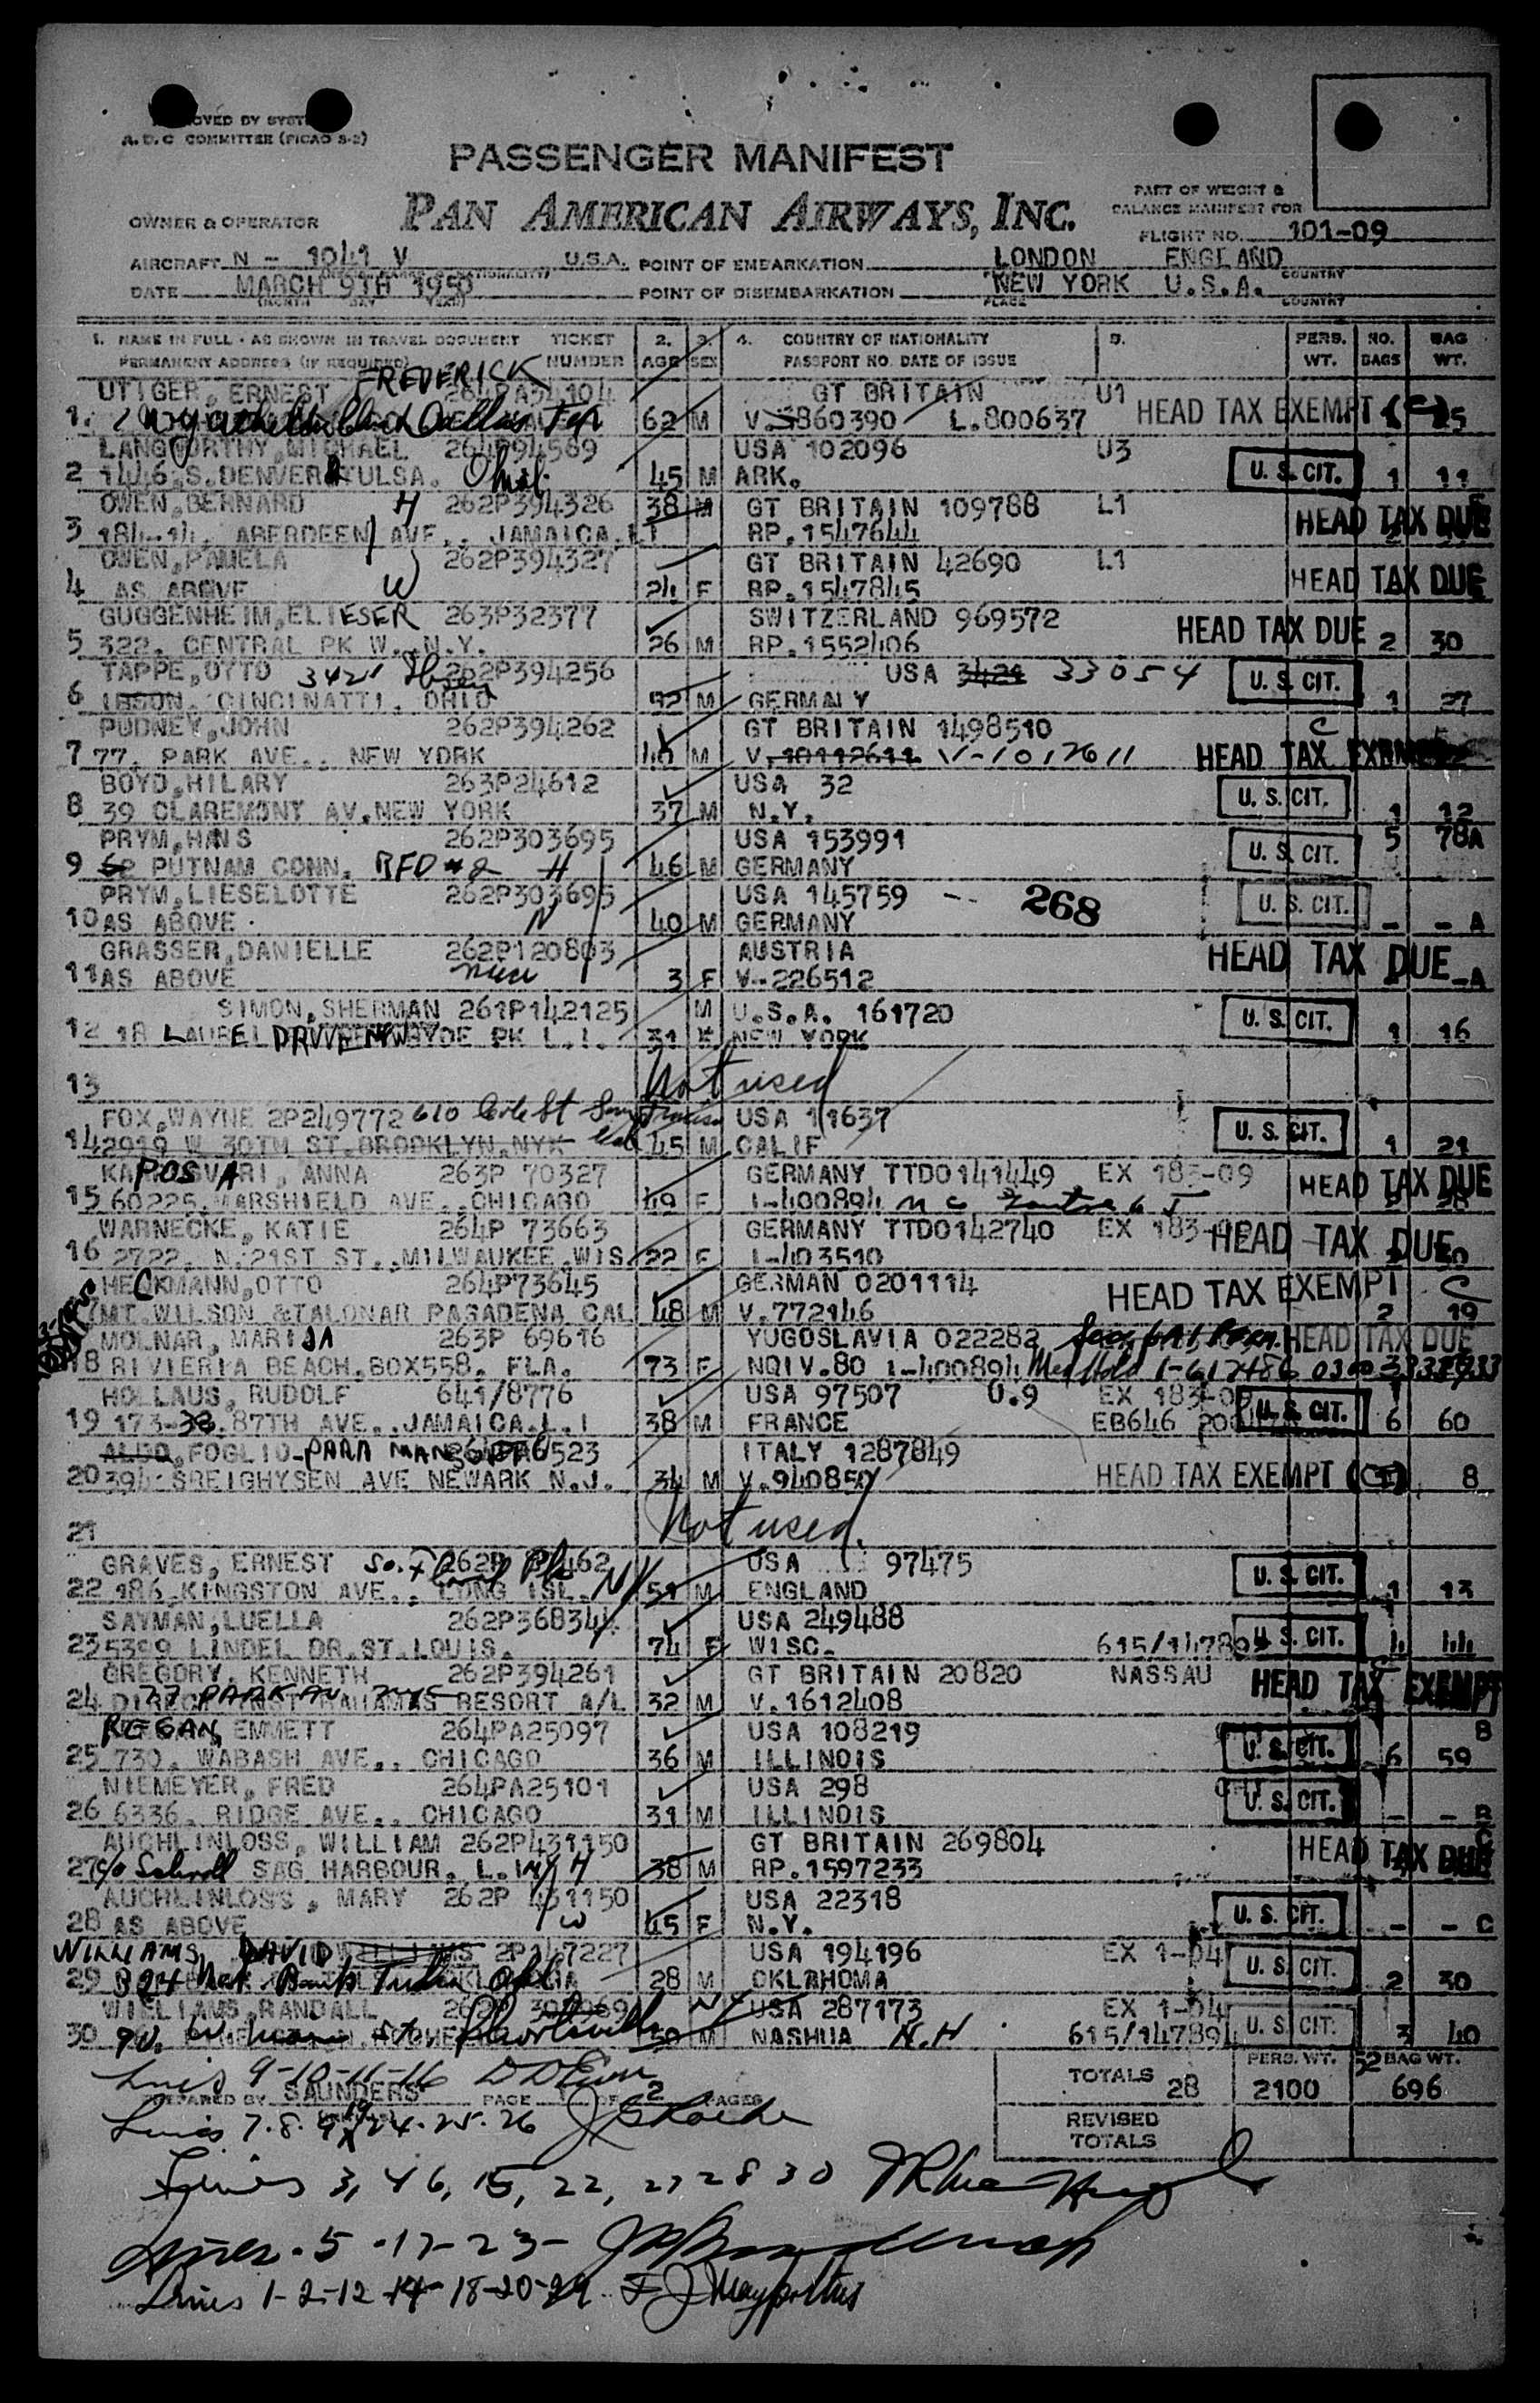 APPROVED BY SYSTEM
A.D.C COMMITTEE (PICAO S-2)
PASSENGER MANIFEST
PAN AMERICAN AIRWAYS, INC.
OWNER & OPERATOR
PART OF WEIGHT &
BALANCE MANIFEST FOR
FLIGHT NO. 101-09
AIRCRAFT N - 1041 V U.S.A. POINT OF EMBARKATION LONDON ENGLAND
DATE MARCH 9TH 1950 POINT OF DISEMBARKATION NEW YORK U.S.A.
PLACE COUNTRY
1. NAME IN FULL - AS SHOWN IN TRAVEL DOCUMENT TICKET 2. 3. 4. COUNTRY OF NATIONALITY 5. PERS. NO. BAG
PERMANENT ADDRESS (IF REQUIRED) NUMBER AGE SEX PASSPORT NO. DATE OF ISSUE WT. BAGS WT.
UTIGER, ERNEST FREDERICK GT BRITAIN U1
1. Dallas Tex 62 M V.3860390 L.800637 HEAD TAX EXEMPT (C)
LANGWORTHY, MICHAEL 264P94569 USA 102096 U3
2 1446.S.DENVER TULSA. Okla. 45 M ARK. U.S.CIT. 1 11
OWEN, BERNARD H 262P394326 38 M GT BRITAIN 109788 L1
3 184-14. ABERDEEN AVE.. JAMAICA.LI RP.1547644 HEAD TAX DUE
OWEN, PAMELA 262P394327 GT BRITAIN 42690 L1
4 AS ABOVE W 24 F RP.1547845 HEAD TAX DUE
GUGGENHEIM, ELIESER 263P32377 SWITZERLAND 969572
5 322. CENTRAL PK W..N.Y. 26 M RP.1552406 HEAD TAX DUE 2 30
TAPPE, OTTO 3421 262P394256 USA 3421 33054
6 IBSON. CINCINATTI. OHIO 52 M GERMALY U.S.CIT. 1 27
PUDNEY, JOHN 262P394262 GT BRITAIN 1498510 C
7 77. PARK AVE.. NEW YORK 40 M V.10112611 V-1012611 HEAD TAX EXEMPT
BOYD, HILARY 263P24612 USA 32
8 39 CLAREMONT AV.NEW YORK 37 M N.Y. U.S.CIT. 1 12
PRYM, HANS 262P303695 USA 153991 5 78A
9 62 PUTNAM CONN. RFD #2 H 46 M GERMANY U.S.CIT.
PRYM, LIESELOTTE 262P303695 USA 145759 -- 268
10 AS ABOVE 40 M GERMANY U.S.CIT. - - A
GRASSER, DANIELLE 262P120803 AUSTRIA
11 AS ABOVE niece 3 F V-226512 HEAD TAX DUE -A
SIMON, SHERMAN 261P142125 M U.S.A. 161720
12 18 LAUREL DRIVE HYDE PK L.I. 31 NEW YORK U.S.CIT. 1 16
13 Not used
FOX, WAYNE 2P249772 610 Cole St San Francisco USA 11637
14 2919 W 30TH ST.BROOKLYN.NYK Cal 45 M CALIF U.S.CIT. 1 21
KAPOSVARI, ANNA 263P 70327 GERMANY TTD0141449 EX 183-09
15 60225.MARSHIELD AVE..CHICAGO 49 F I-400894 HEAD TAX DUE
WARNECKE, KATIE 264P 73663 GERMANY TTD0142740 EX 183-
16 2722. N.21ST ST..MILWAUKEE.WIS. 22 F I-403510 HEAD TAX DUE
HECKMANN, OTTO 264P73645 GERMAN 0201114
MT.WILSON &TALONAR PASADENA CAL 48 M V.772146 HEAD TAX EXEMPT C 2 19
MOLNAR, MARIJA 263P 69616 YUGOSLAVIA 022282 HEAD TAX DUE
18 RIVIERIA BEACH.BOX558. FLA. 73 F NQIV.80 I-400894 Med Hold
HOLLAUS, RUDOLF 641/8776 USA 97507 U.9 EX 183-09
19 173-38.87TH AVE..JAMAICA.L.I 38 M FRANCE EB646 U.S.CIT. 6 60
ALDO, FOGLIO-PARA ITALY 1287849
20 394 SREIGHYSEN AVE NEWARK N.J. 34 M V.94085 HEAD TAX EXEMPT 8
21 Not used.
GRAVES, ERNEST USA 97475
22 186.KINGSTON AVE.. LONG ISL. NY 51 M ENGLAND U.S.CIT. 1 13
SAYMAN, LUELLA 262P368344 USA 249488
23 5399 LINDEL DR.ST.LOUIS. 74 F WISC. U.S.CIT. 4 44
GREGORY, KENNETH 262P394261 GT BRITAIN 20820 NASSAU
24 77 PARK AV NYC BAHAMAS RESORT A/L 32 M V.1612408 HEAD TAX EXEMPT
REGAN, EMMETT 264PA25097 USA 108219 B
25 730. WABASH AVE.. CHICAGO 36 M ILLINOIS U.S.CIT. 6 59
NIEMEYER, FRED 264PA25101 USA 298
26 6336. RIDGE AVE.. CHICAGO 31 M ILLINOIS U.S.CIT. - - B
AUCHLINLOSS, WILLIAM 262P431150 GT BRITAIN 269804 C
27 c/o SAG HARBOUR. L.I NY H 38 M RP.1597233 HEAD TAX DUE
AUCHLINLOSS, MARY 262P 431150 USA 22318
28 AS ABOVE W 45 F N.Y. U.S.CIT. - - C
WILLIAMS, DAVID WILLIAMS 2P247227 USA 194196 EX 1-04
29 324 Nat. Bank Tulsa Okl 28 M OKLAHOMA U.S.CIT. 2 30
WILLIAMS, RANDALL USA 287173 EX 1-04
30 M NASHUA N.H. 615/147894 U.S.CIT. 3 40
Lines 9-10-11-16
PREPARED BY SAUNDERS PAGE 1 OF 2 PAGES
TOTALS 28 PERS. WT. 2100 52 BAG WT. 696
Lines 7.8.9 19 24.25.26
REVISED
TOTALS
Lines 3, 4 6, 15, 22, 27 28 30
Lines. 5 -17-23-
Lines 1-2-12-14-18-20-29